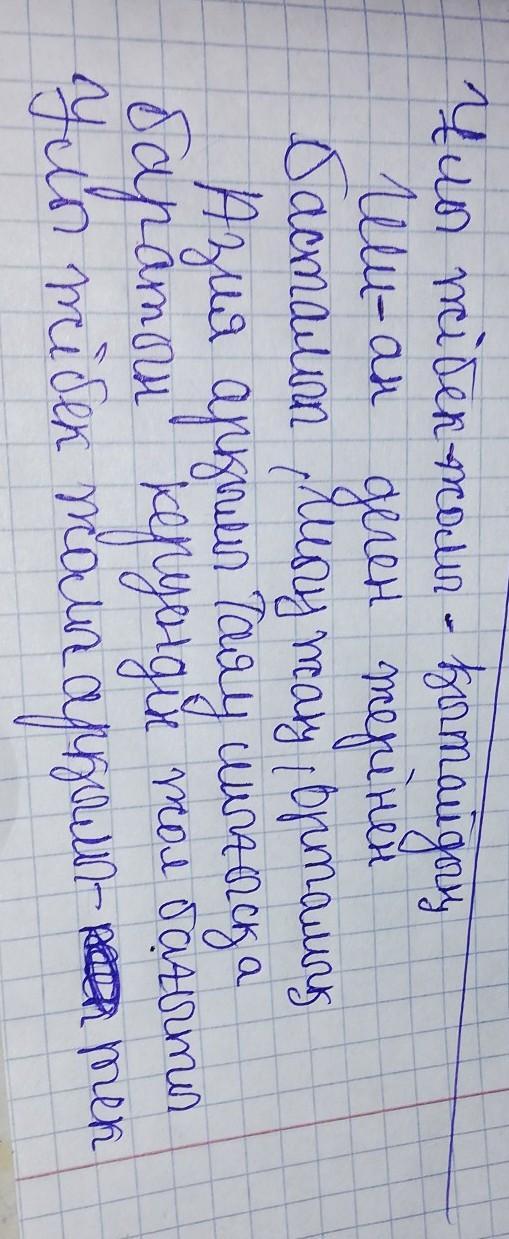 Ұлы жібек-жолы - Қытайдың
Ши-ан деген жерінен
басталып, Шыңжаң, Орталық
Азия арқылы Таяу шығысқа
баратын керуендік жол бағыты
Ұлы жібек жолы арқылы- тек